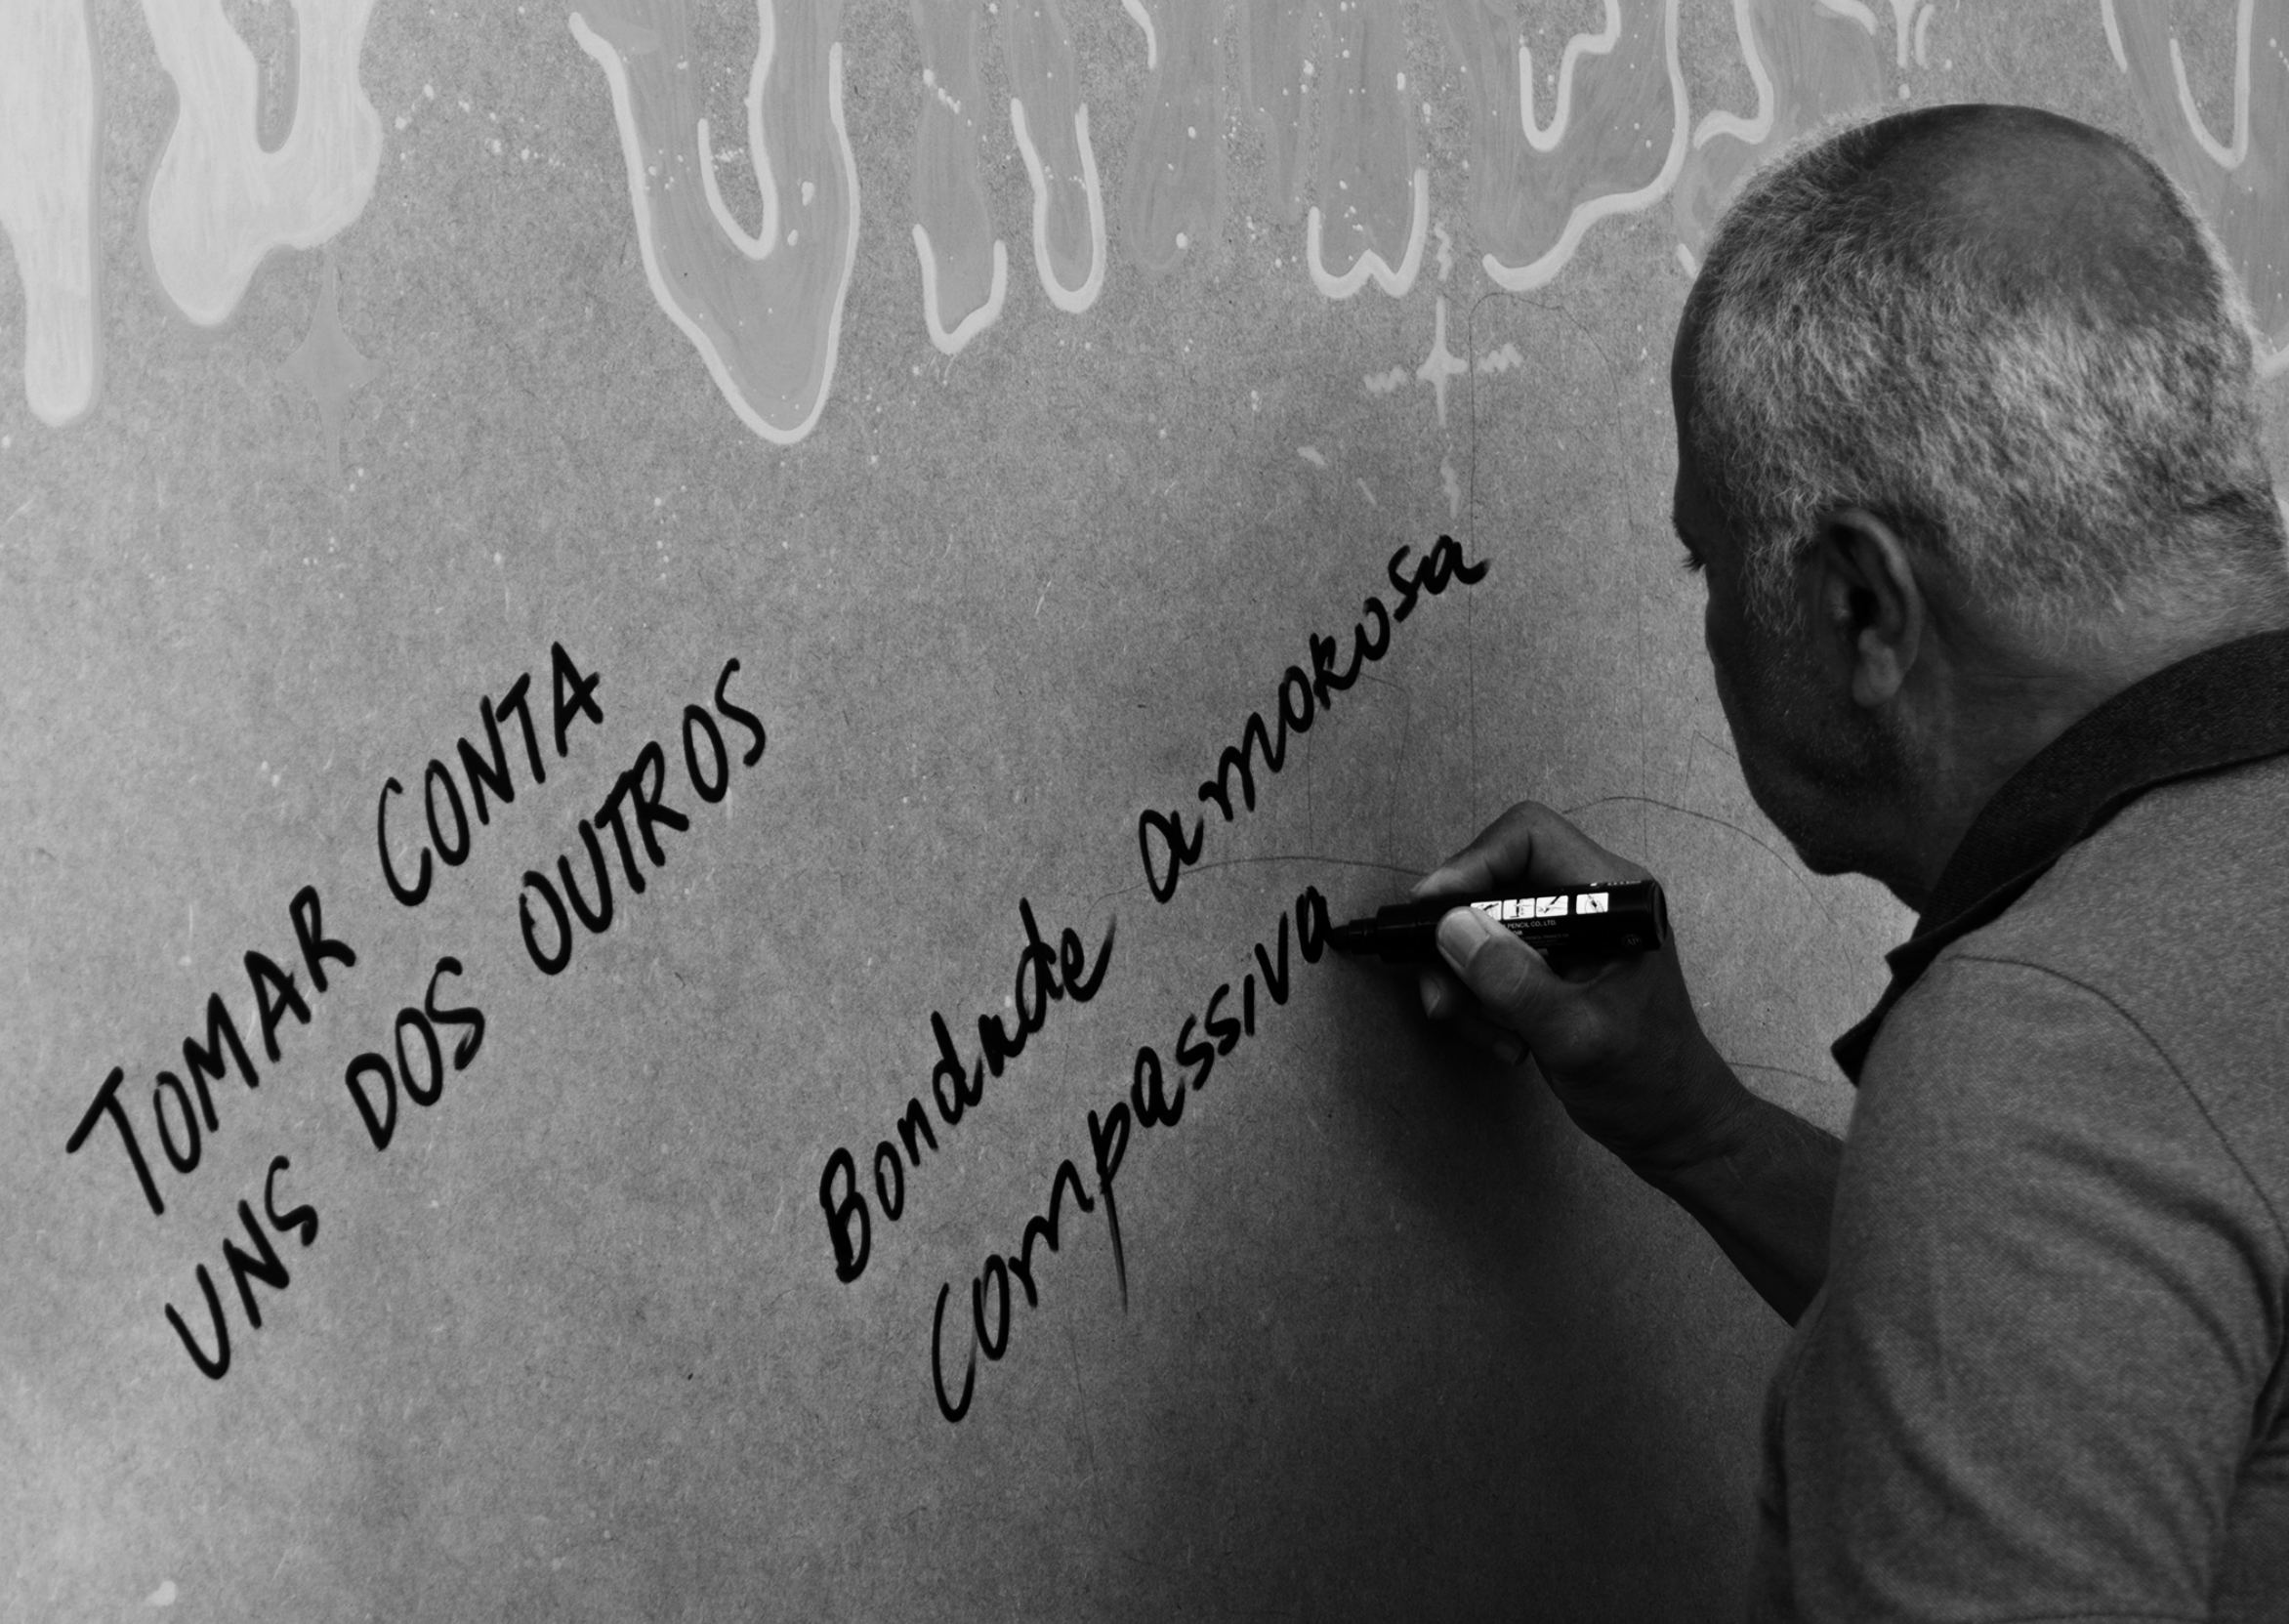 TOMAR CONTA
UNS DOS OUTROS
Bondade amorosa
compassiva
PENCIL CO., LTD.